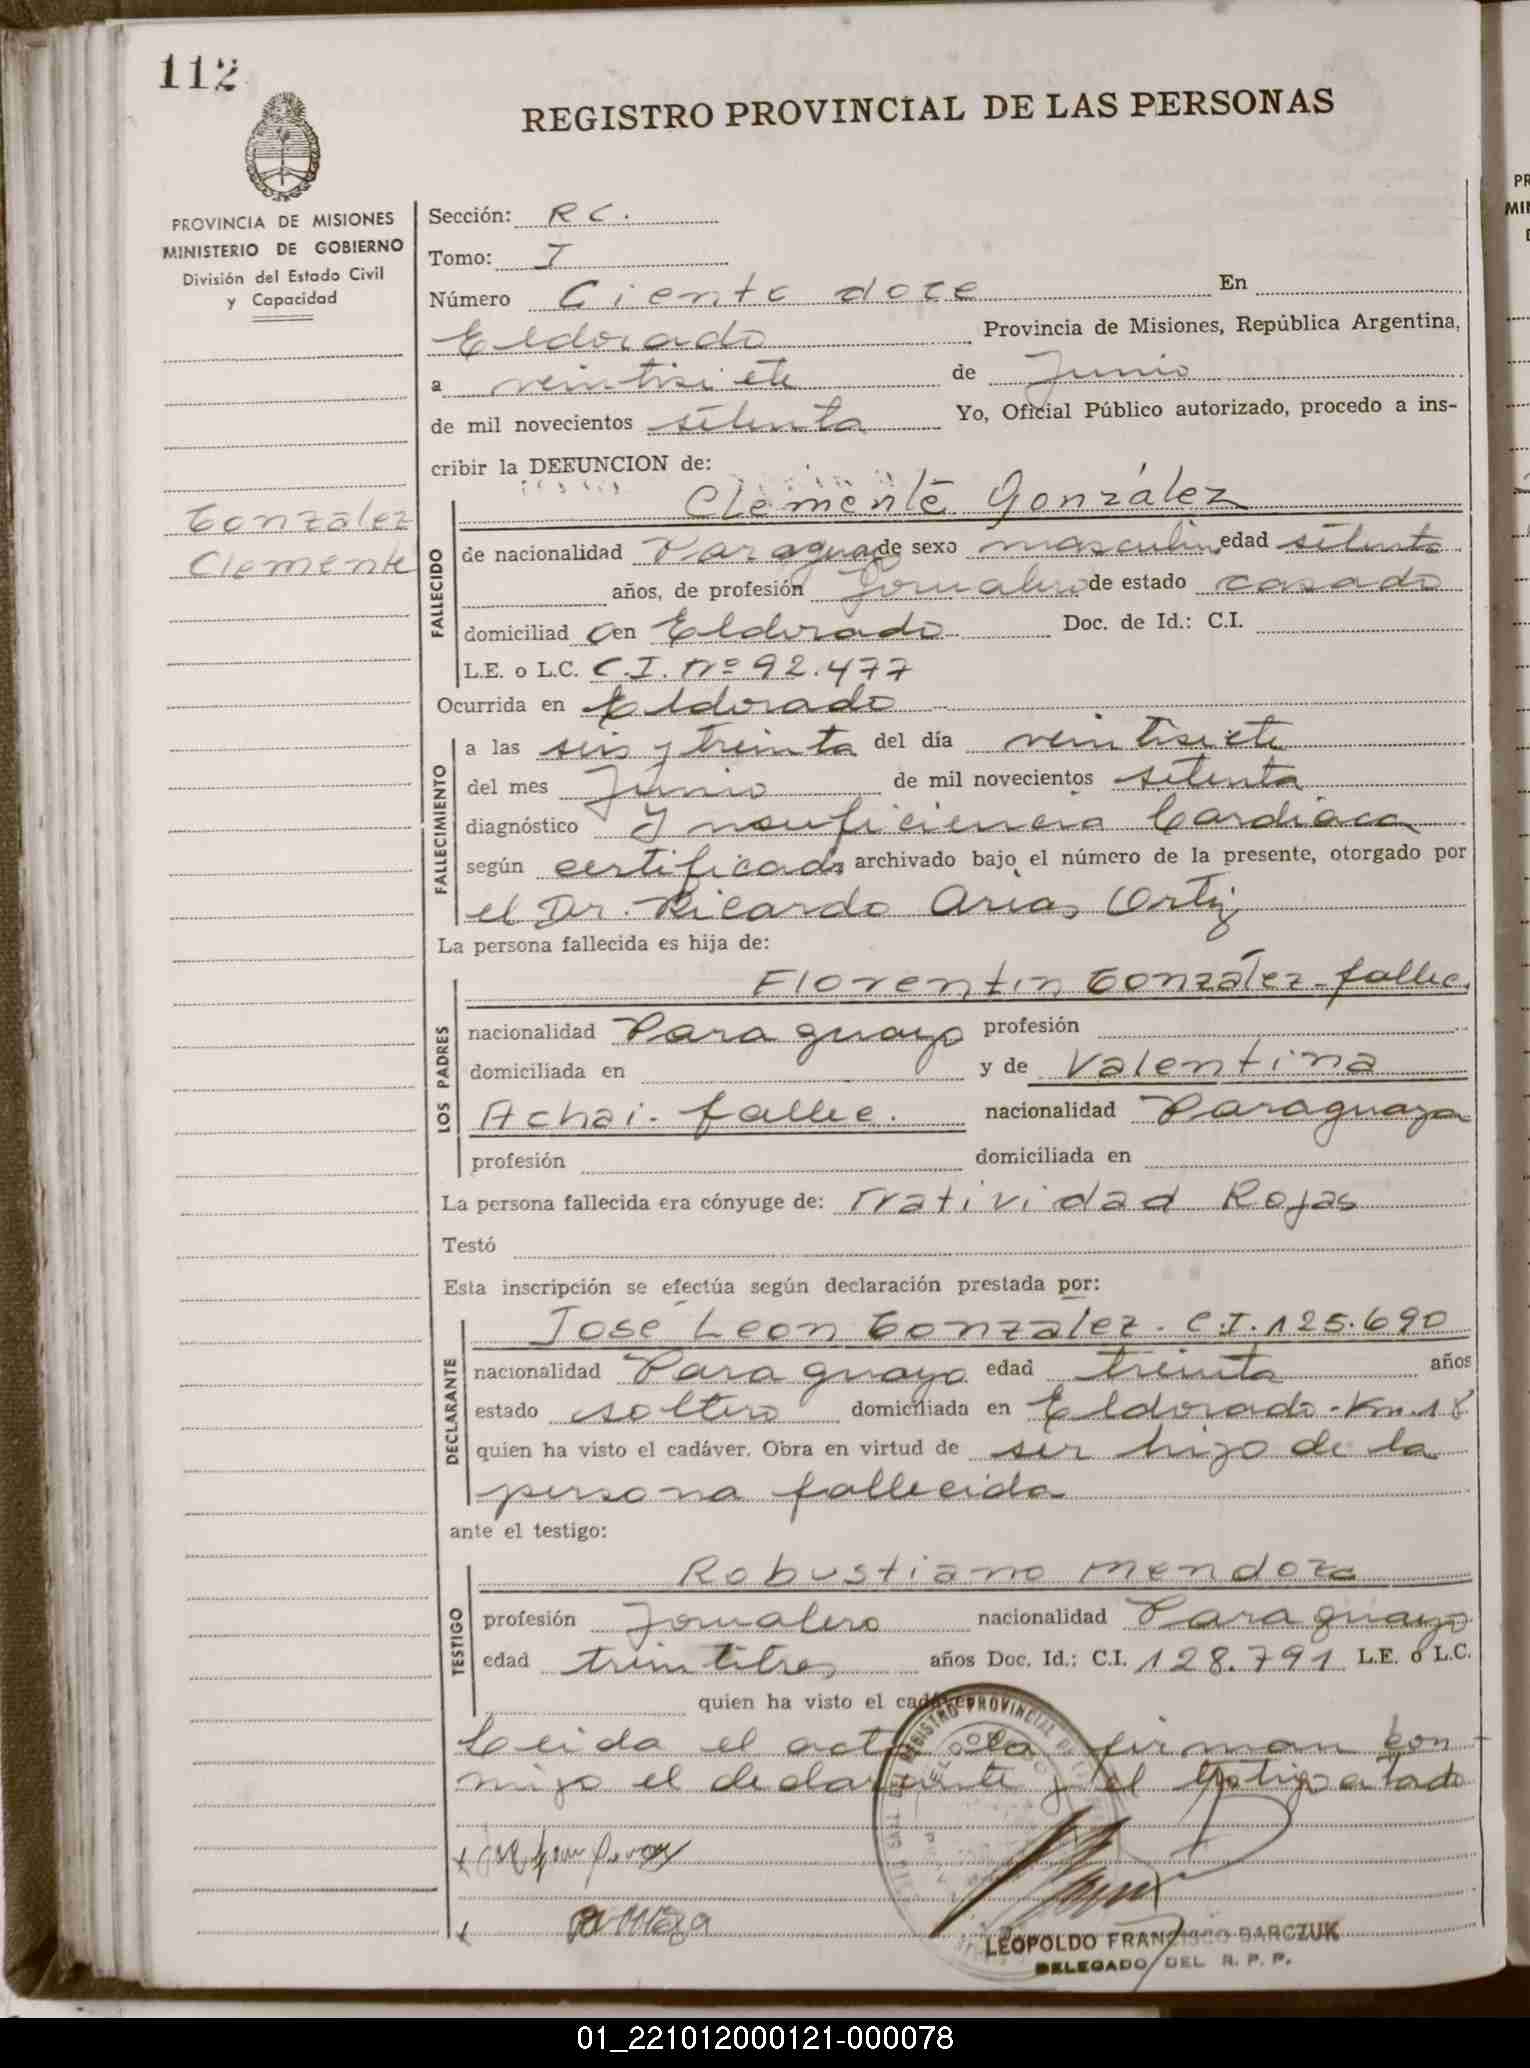 112
REGISTRO PROVINCIAL DE LAS PERSONAS
PROVINCIA DE MISIONES
MINISTERIO DE GOBIERNO
División del Estado Civil
y Capacidad
Gonzalez
Clemente
Sección: R C.
Tomo: I
Número Ciento doce En
Eldorado Provincia de Misiones, República Argentina,
a veintisiete de Junio
de mil novecientos setenta Yo, Oficial Público autorizado, procedo a ins-
cribir la DEFUNCION de:
Clemente González
FALLECIDO
de nacionalidad Paraguaya de sexo masculino edad setenta
años, de profesión Jornalero de estado casado
domiciliad o en Eldorado Doc. de Id.: C.I.
L.E. o L.C. C.I. Nº 92.477
Ocurrida en Eldorado
FALLECIMIENTO
a las seis y treinta del día veintisiete
del mes Junio de mil novecientos setenta
diagnóstico Insuficiencia Cardiaca
según certificado archivado bajo el número de la presente, otorgado por
el Dr. Ricardo Arias Ortiz
La persona fallecida es hija de:
LOS PADRES
Florentin González-fallec.
nacionalidad Paraguayo profesión
domiciliada en y de Valentina
Achai- fallec. nacionalidad Paraguaya
profesión domiciliada en
La persona fallecida era cónyuge de: Natividad Rojas
Testó
Esta inscripción se efectúa según declaración prestada por:
DECLARANTE
José Leon Gonzalez. C.I. 125.690
nacionalidad Paraguayo edad treinta años
estado soltero domiciliada en Eldorado-Km.18
quien ha visto el cadáver. Obra en virtud de ser hijo de la
persona fallecida
ante el testigo:
TESTIGO
Robustiano Mendoza
profesión Jornalero nacionalidad Paraguayo
edad treintitres años Doc. Id.: C.I. 128.791 L.E. o L.C.
quien ha visto el cadáver
Leida el acta la firman con
migo el declarante y el testigo citado
LEOPOLDO FRANCISCO DARCZUK
DELEGADO DEL R. P. P.
01_221012000121-000078